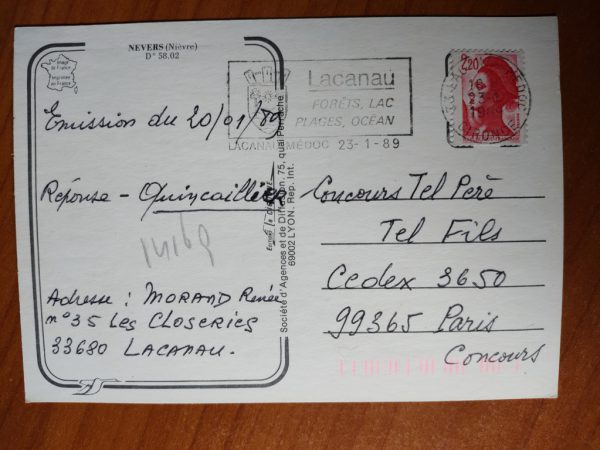 NEVERS (Nièvre)
D° 58.02
Image de France
Imprimée en France
Lacanau
FORÊTS, LAC
PLAGES, OCÉAN
LACANAU MÉDOC 23-1-89
2,20
Emission du 20/01/89
Réponse - Quincaillier
Adresse : MORAND Renée
n°35 Les Closeries
33680 LACANAU.
Société d'Agences et de Diffusion, 75, quai Perrache
69002 LYON. Rep. Int.
Concours Tel Père
Tel Fils
Cedex 3650
99365 Paris
Concours